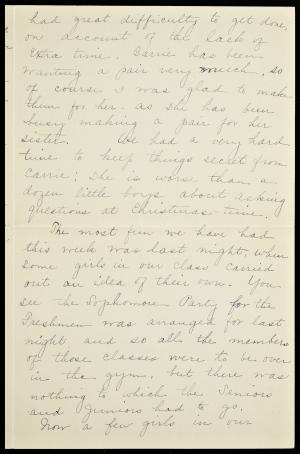 had great difficulty to get done,
on account of the lack of
extra time. Carrie has been
wanting a pair very much, so
of course I was glad to make
them for her. as she has been
busy making a pair for her
sister. We had a very hard
time to keep things secret from
Carrie; she is worse than a
dozen little boys about asking
questions at Christmas time.
The most fun we have had
this week was last night, when
some girls in our class carried
out an idea of their own. You
see the Sophomore Party for the
Freshmen was arranged for last
night and so all the members
of those classes were to be over
in the gym. but there was
nothing to which the Seniors
and Juniors had to go.
Now a few girls in our